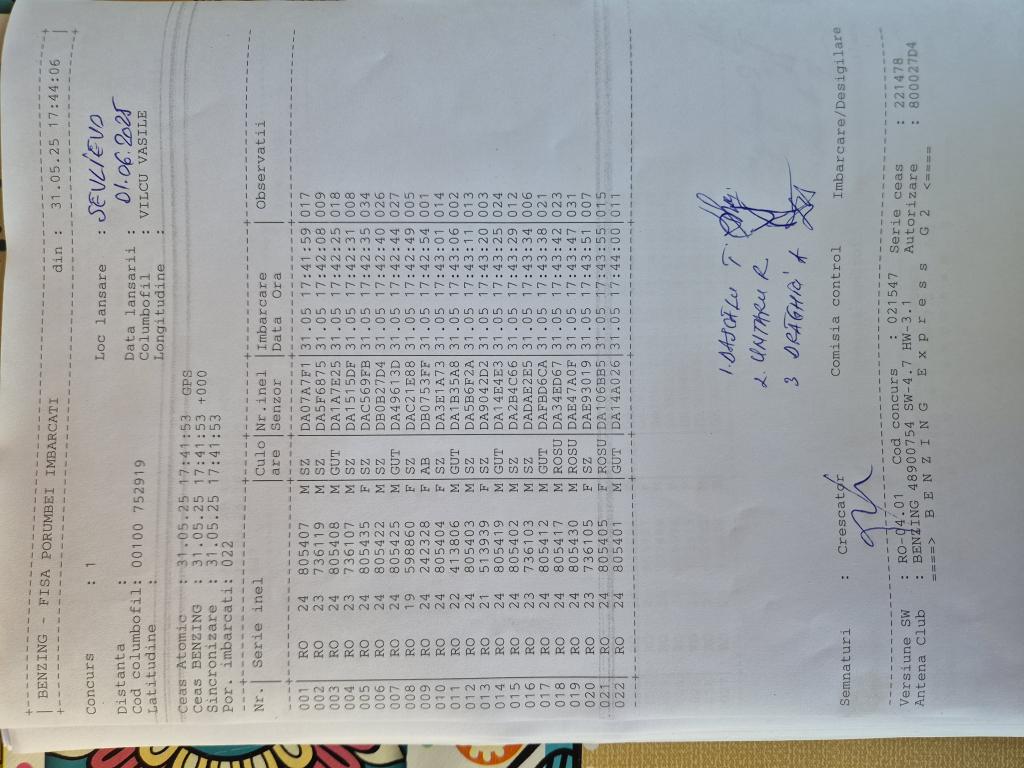 BENZING - FISA PORUMBEI IMBARCATI din : 31.05.25 17:44:06
Concurs : 1 Loc lansare : SEVLIEVO
Distanta : Data lansarii : 01.06.2025
Cod columbofil: 00100 752919 Columbofil : VILCU VASILE
Latitudine : Longitudine :
Ceas Atomic : 31.05.25 17:41:53 GPS
Ceas BENZING : 31.05.25 17:41:53 +000
Sincronizare : 31.05.25 17:41:53
Por. imbarcati: 022
Nr. Serie inel Culo Nr.inel Imbarcare Observatii
are Senzor Data Ora
001 RO 24 805407 M SZ DA07A7F1 31.05 17:41:59 017
002 RO 23 736119 M SZ DA5F6875 31.05 17:42:08 009
003 RO 24 805408 M GUT DA1A7E25 31.05 17:42:25 018
004 RO 23 736107 M SZ DA1515DF 31.05 17:42:31 008
005 RO 24 805435 F SZ DAC569FB 31.05 17:42:35 034
006 RO 24 805422 M SZ DB0B27D4 31.05 17:42:40 026
007 RO 24 805425 M GUT DA49613D 31.05 17:42:44 027
008 RO 19 598860 F SZ DAC21E88 31.05 17:42:49 005
009 RO 24 242328 F AB DB0753FF 31.05 17:42:54 001
010 RO 24 805404 F SZ DA3E1A73 31.05 17:43:01 014
011 RO 22 413806 M GUT DA1B35A8 31.05 17:43:06 002
012 RO 24 805403 M SZ DA5B6F2A 31.05 17:43:11 013
013 RO 21 513939 F SZ DA9042D2 31.05 17:43:20 003
014 RO 24 805419 M GUT DA14E4E3 31.05 17:43:25 024
015 RO 24 805402 M SZ DA2B4C66 31.05 17:43:29 012
016 RO 23 736103 M SZ DADAE2E5 31.05 17:43:34 006
017 RO 24 805412 M GUT DAFBD6CA 31.05 17:43:38 021
018 RO 24 805417 M ROSU DA34ED67 31.05 17:43:42 023
019 RO 24 805430 M ROSU DAE47A0F 31.05 17:43:47 031
020 RO 23 736105 F SZ DAE93019 31.05 17:43:51 007
021 RO 24 805405 F ROSU DA106BB5 31.05 17:43:55 015
022 RO 24 805401 M GUT DA14A026 31.05 17:44:00 011
1. DASCALU T
2. UNTARU R
3 DRAGHICI A
Semnaturi : Crescator Comisia control Imbarcare/Desigilare
Versiune SW : RO-04.01 Cod concurs : 021547 Serie ceas : 221478
Antena Club : BENZING 48900754 SW-4.7 HW-3.1 Autorizare : 800027D4
====> B E N Z I N G E x p r e s s G 2 <====